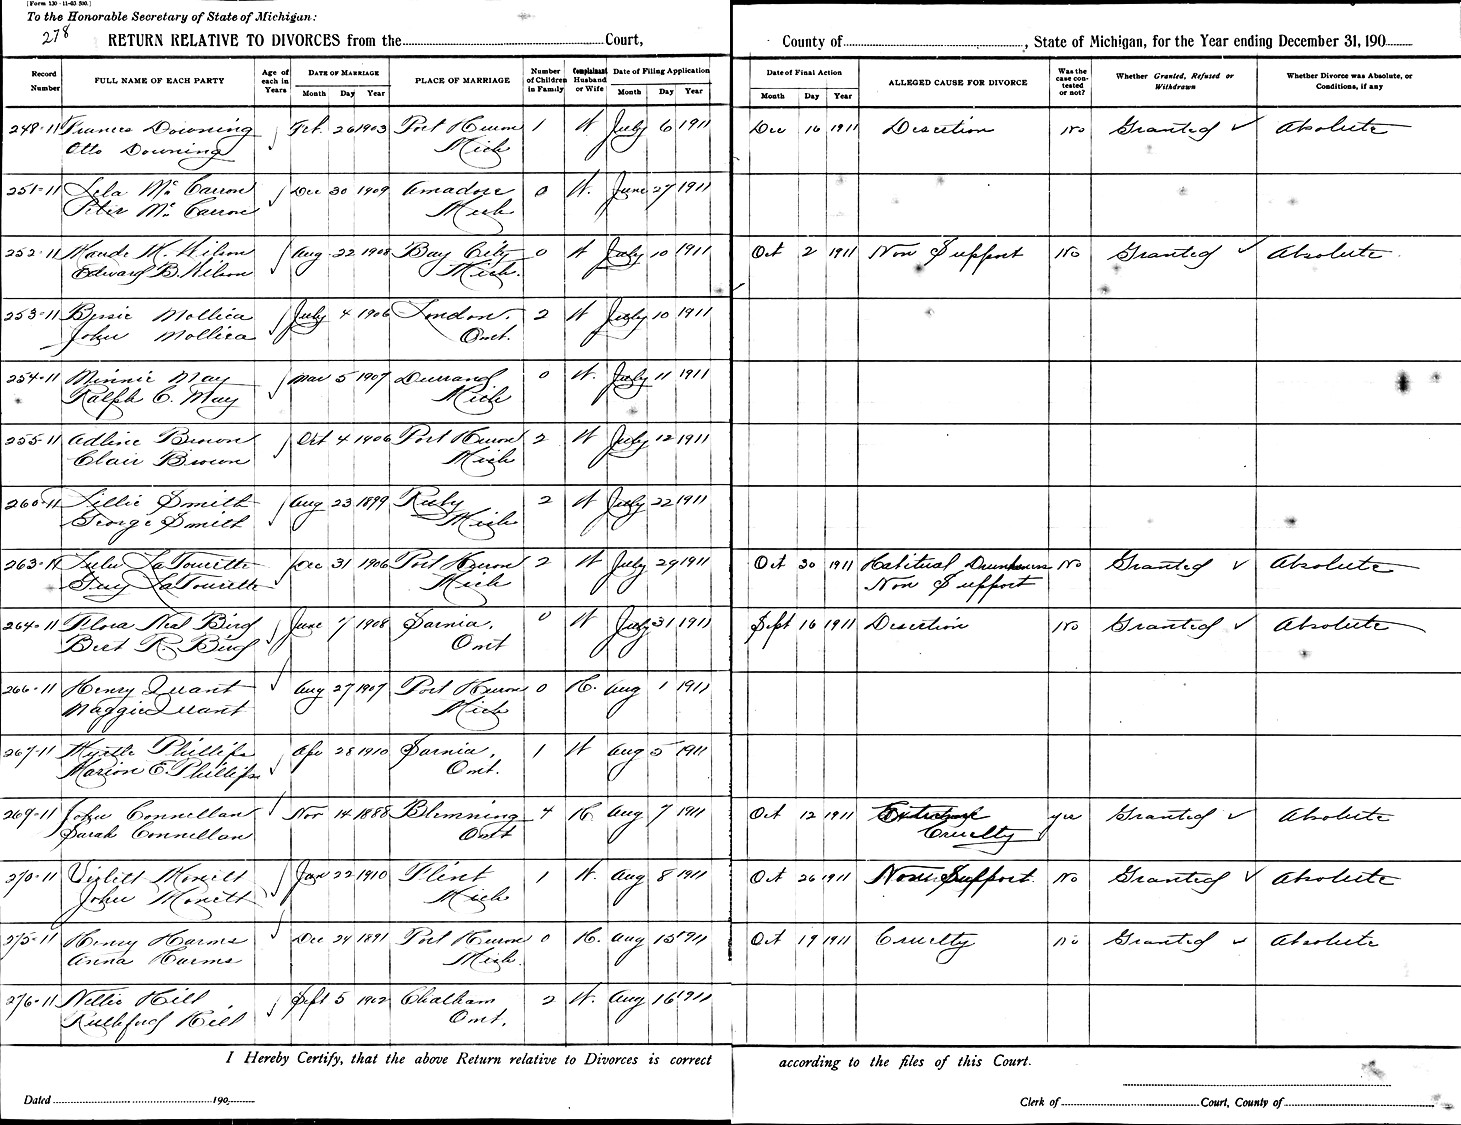 [Form 130 - 11-03 500.]
To the Honorable Secretary of State of Michigan:
278
RETURN RELATIVE TO DIVORCES from the Court, County of , State of Michigan, for the Year ending December 31, 190
Record Number FULL NAME OF EACH PARTY Age of each in Years DATE OF MARRIAGE Month Day Year PLACE OF MARRIAGE Number of Children in Family Complainant Husband or Wife Date of Filing Application Month Day Year Date of Final Action Month Day Year ALLEGED CAUSE FOR DIVORCE Was the case contested or not? Whether Granted, Refused or Withdrawn Whether Divorce was Absolute, or Conditions, if any
248-11 Frances Downing Feb. 26 1903 Port Huron 1 W July 6 1911 Dec 16 1911 Desertion No Granted ✓ Absolute
Otto Downing Mich
251-11 Lela Mc Carron Dec 30 1909 Amadore 0 W. June 27 1911
Peter Mc Carron Mich
252-11 Maude M. Wilson Aug 22 1908 Bay City 0 W July 10 1911 Oct 2 1911 Non Support No Granted ✓ Absolute
Edward B. Wilson Mich.
253-11 Bessie Mollica July 4 1906 London. 2 W July 10 1911
John Mollica Ont.
254-11 Minnie May Mar 5 1907 Durrand 0 W. July 11 1911
Ralph C. May Mich
255-11 Adline Brown Oct 4 1906 Port Huron 2 W July 12 1911
Clair Brown Mich
260-11 Lillie Smith Aug 23 1899 Ruby 2 W July 22 1911
George Smith Mich
263-11 Lulu LaTourette Dec 31 1906 Port Huron 2 W July 29 1911 Oct 30 1911 Habitual Drunkenness No Granted ✓ Absolute
Guy LaTourette Mich Non Support
264-11 Flora Neal Bird June 7 1908 Sarnia, 0 W July 31 1911 Sept 16 1911 Desertion No Granted ✓ Absolute
Bert R. Bird Ont
266-11 Henry Quant Aug 27 1907 Port Huron 0 H. Aug 1 1911
Maggie Quant Mich
267-11 Myrtle Phillips Apr 28 1910 Sarnia, 1 W Aug 5 1911
Marion E. Phillips Ont.
269-11 John Connellan Nov 14 1888 Blemning 4 H Aug 7 1911 Oct 12 1911 Extreme yes Granted ✓ Absolute
Sarah Connellan Ont Cruelty
270-11 Violett Monett Jan 22 1910 Flint 1 W. Aug 8 1911 Oct 26 1911 Non Support No Granted ✓ Absolute
John Monett Mich
275-11 Henry Harms Dec 24 1891 Port Huron 0 H. Aug 15 1911 Oct 19 1911 Cruelty No Granted ✓ Absolute
Anna Harms Mich.
276-11 Nettie Hill Sept 5 1902 Chatham 2 W. Aug 16 1911
Ruthford Hill Ont.
I Hereby Certify, that the above Return relative to Divorces is correct according to the files of this Court.
Dated 190 Clerk of Court, County of